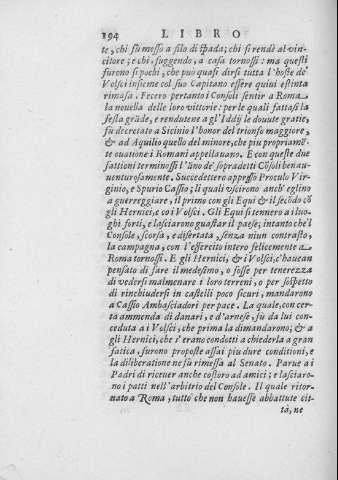 194 LIBRO
te, chi fù messo a filo di spada; chi si rendè al vin-
citore; e chi, fuggendo, a casa tornossi: ma questi
furono sì pochi, che può quasi dirsi tutta l'hoste de'
Volsci insieme col suo Capitano essere quiui estinta
rimasa. Fecero pertanto i Consoli sentir a Roma
la nouella delle loro vittorie: per le quali fattasi la
festa grãde, e rendutene a gl'Iddij le douute gratie,
fù decretato a Sicinio l'honor del trionfo maggiore,
& ad Aquilio quello del minore, che piu propriamẽ-
te ouatione i Romani appellauano. E con queste due
fattioni terminossi l'ãno de' sopradetti Cõsoli benau-
uenturosamente. Succedettero appresso Proculo Vir-
ginio, e Spurio Cassio; li quali vscirono anch' eglino
a guerreggiare, il primo con gli Equi & il secõdo cõ
gli Hernici, e co i Volsci. Gli Equi si tennero a i luo-
ghi forti, e lasciarono guastar il paese; intanto che'l
Console, scorsa, e disertata, senza niun contrasto,
la campagna, con l'essercito intero felicemente a
Roma tornossi. E gli Hernici, & i Volsci, c'haueuan
pensato di fare il medesimo, o fosse per tenerezza
di vedersi malmenare i loro terreni, o per sospetto
di rinchiudersi in castelli poco sicuri, mandarono
a Cassio Ambasciadori per pace. La quale, con cer-
ta ammenda di danari, e d'arnese, fù da lui con-
ceduta a i Volsci, che prima la dimandarono; & a
gli Hernici, che s'erano condotti a chiederla a gran
fatica, furono proposte assai piu dure conditioni, e
la diliberatione ne fù rimessa al Senato. Parue a i
Padri di riceuer anche costoro ad amici; e lasciaro-
no i patti nell'arbitrio del Console. Il quale ritor-
nato a Roma, tutto che non hauesse abbattute cit-
tà, ne